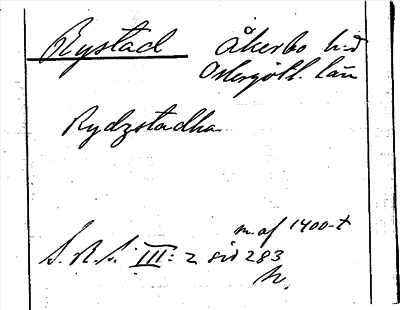 Rystad Åkerbo h-d
Östergötl. län
Rydzstadha
m. af 1400-t
S. R. S. III: 2 sid 283